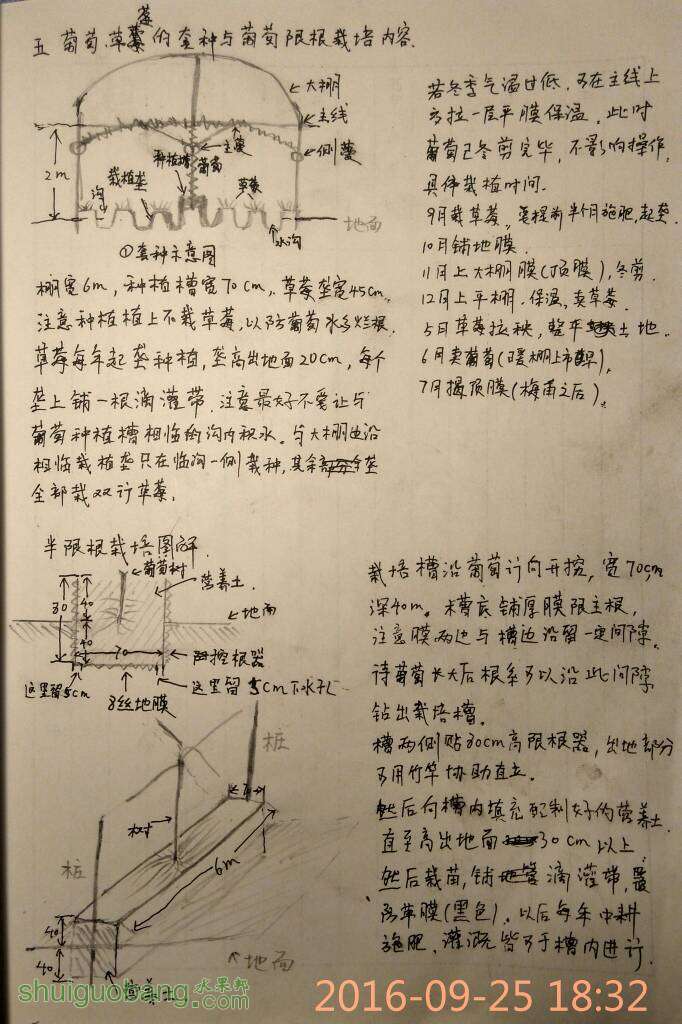 五 葡萄、草莓的套种与葡萄限根栽培内容.
大棚
主线
主蔓
侧蔓
葡萄
种植槽
栽植垄
草莓
2m
沟
地面
水沟
①套种示意图
棚宽6m, 种植槽宽70cm, 草莓垄宽45cm.
注意种植槽上不栽草莓, 以防葡萄水多烂根.
草莓每年起垄种植, 垄高出地面20cm, 每个
垄上铺一根滴灌带. 注意最好不要让与
葡萄种植槽相临的沟内积水. 与大棚边沿
相临栽植垄只在临沟一侧栽种, 其余垄
全部栽双行草莓.
若冬季气温过低, 可在主线上
方拉一层平膜保温. 此时
葡萄已冬剪完毕, 不影响操作.
具体栽植时间.
9月栽草莓, 要提前半个月施肥, 起垄.
10月铺地膜.
11月上大棚膜(顶膜), 冬剪.
12月上平棚. 保温, 卖草莓.
5月草莓拉秧, 整平土地.
6月卖葡萄(暖棚上市早).
7月揭顶膜(梅雨之后).
半限根栽培图解.
葡萄树
营养土
地面
30
40
40
70
控根器
这里留5cm
8丝地膜
这里留5cm下水孔
栽培槽沿葡萄行向开挖, 宽70cm,
深40m. 槽底铺厚膜限主根,
注意膜两边与槽边沿留一定间隙.
待葡萄长大后根系可以沿此间隙
钻出栽培槽.
槽两侧贴30cm高限根器, 出地部分
可用竹竿协助直立.
然后向槽内填充配制好的营养土.
直至高出地面30cm以上
然后栽苗, 铺滴灌带, 覆
防草膜(黑色). 以后每年中耕
施肥、灌溉皆可于槽内进行.
桩
树
70
6m
桩
40
40
地面
营养土
shuiguobang.com
水果邦
2016-09-25 18:32